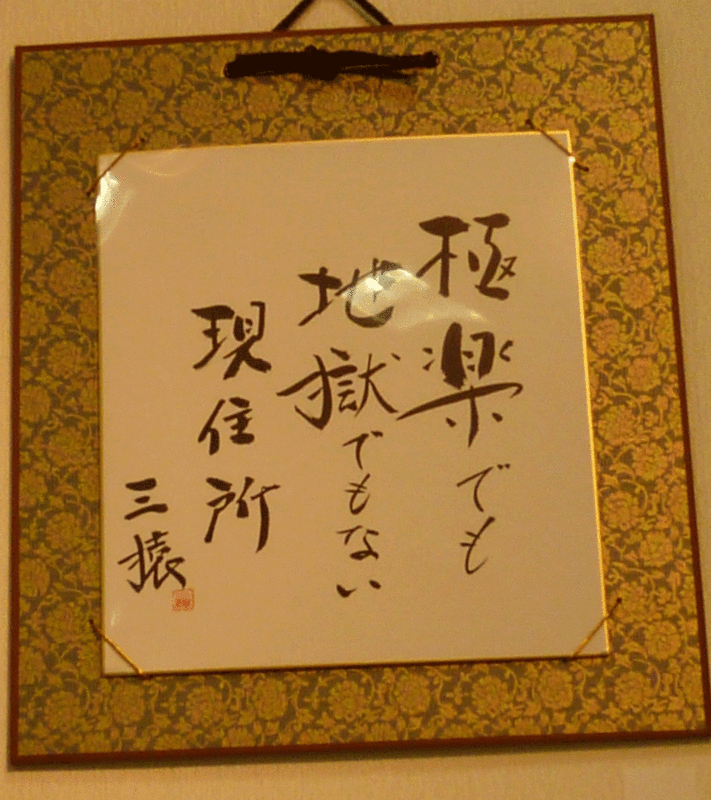 極楽でも
地獄でもない
現住所
三猿